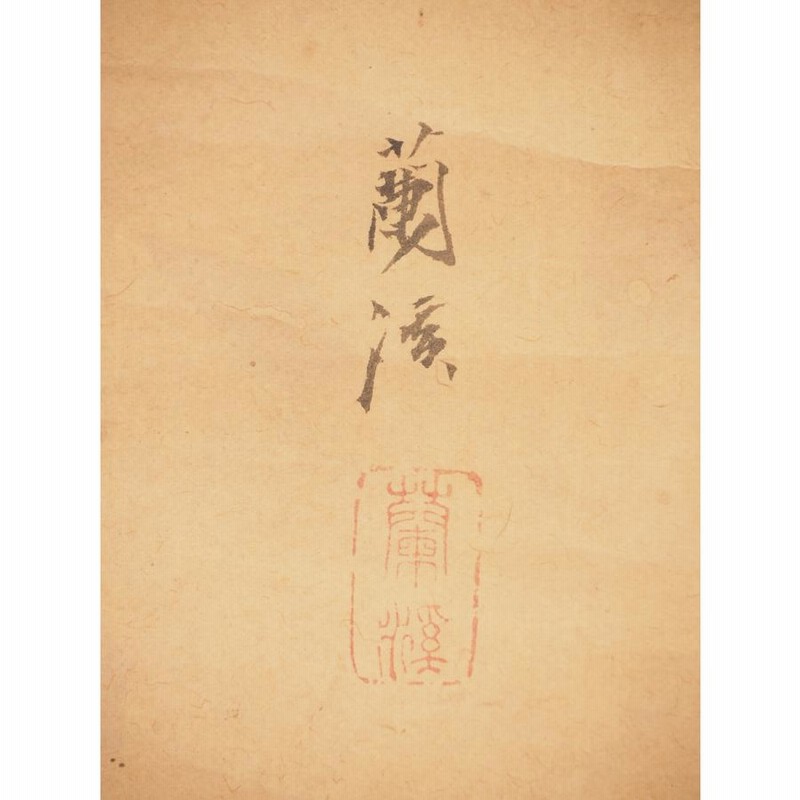 蘭溪
蘭溪